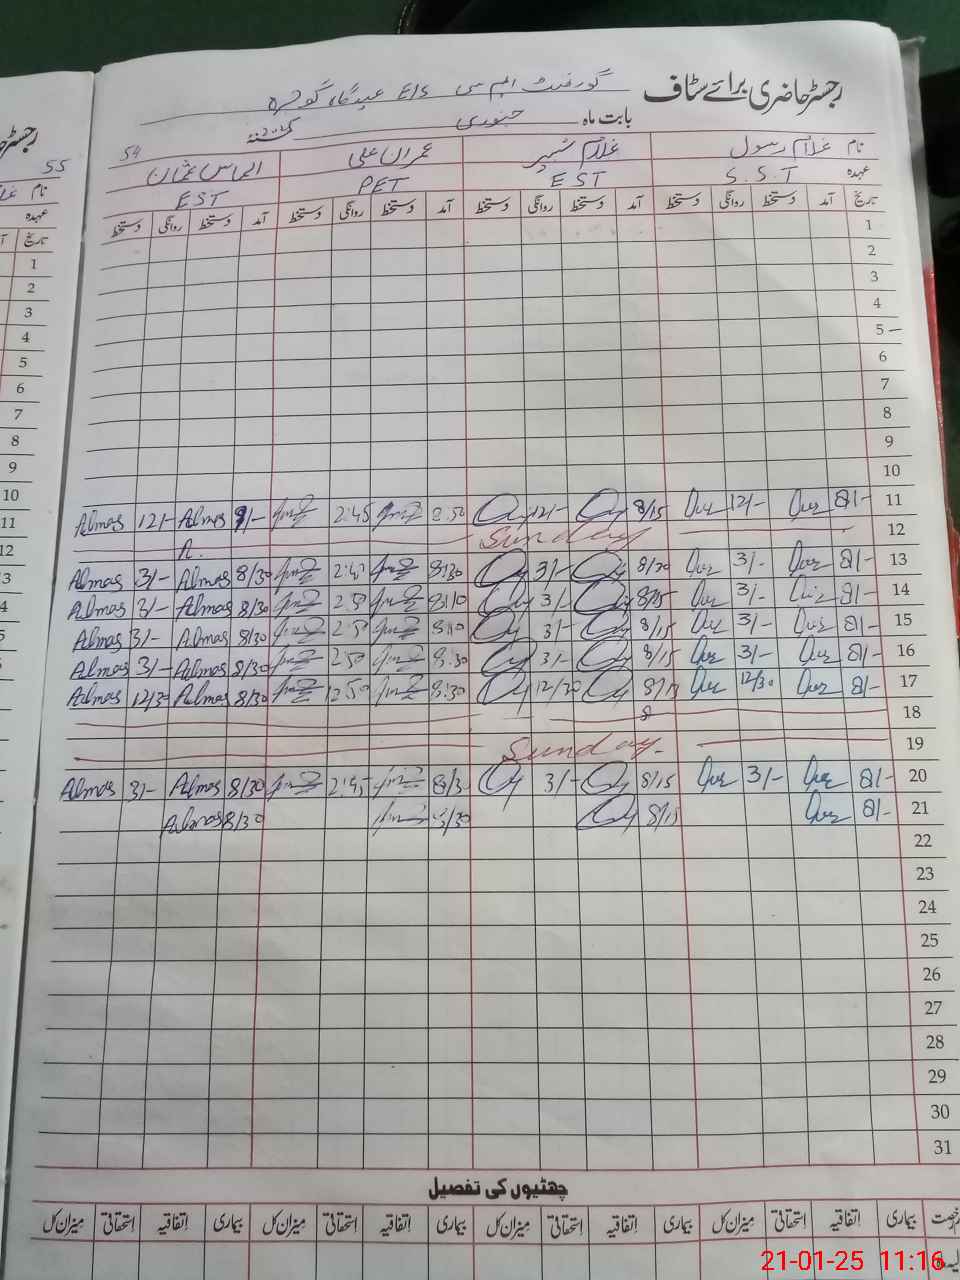 رجسٹر حاضری برائے سٹاف گورنمنٹ ایم سی E/S عیدگاہ گوجرہ
بابت ماہ جنوری
54
نام غلام رسول غلام شبیر عمران علی الماس عثمان
عہدہ S.S.T EST PET EST
تاریخ آمد دستخط روانگی دستخط آمد دستخط روانگی دستخط آمد دستخط روانگی دستخط آمد دستخط روانگی دستخط
1
2
3
4
5 –
6
7
8
9
10
11 8/- 12/- 8/15 12/- 8:50 2:45 9/- Almas 12/- Almas
12 Sunday
13 8/- 3/- 8/20 3/- 8:30 2:45 8/30 Almas 3/- Almas
14 8/- 3/- 8/15 3/- 8:10 2:50 8/30 Almas 3/- Almas
15 8/- 3/- 8/15 3/- 8:10 2:50 8/30 Almas 3/- Almas
16 8/- 3/- 8/15 3/- 8:30 2:50 8/30 Almas 3/- Almas
17 8/- 12/30 8/15 12/30 8:30 12:50 8/30 Almas 12/30 Almas
18
19 Sunday
20 8/- 3/- 8/15 3/- 8/30 2:45 8/30 Almas 3/- Almas
21 8/- 8/15 8/30 8/30 Almas
22
23
24
25
26
27
28
29
30
31
چھٹیوں کی تفصیل
بیماری اتفاقیہ استحقاقی میزان کل بیماری اتفاقیہ استحقاقی میزان کل بیماری اتفاقیہ استحقاقی میزان کل بیماری اتفاقیہ استحقاقی میزان کل
55
نام
عہدہ
تاریخ
1
2
3
4
5
6
7
8
9
10
11
12
21-01-25 11:16